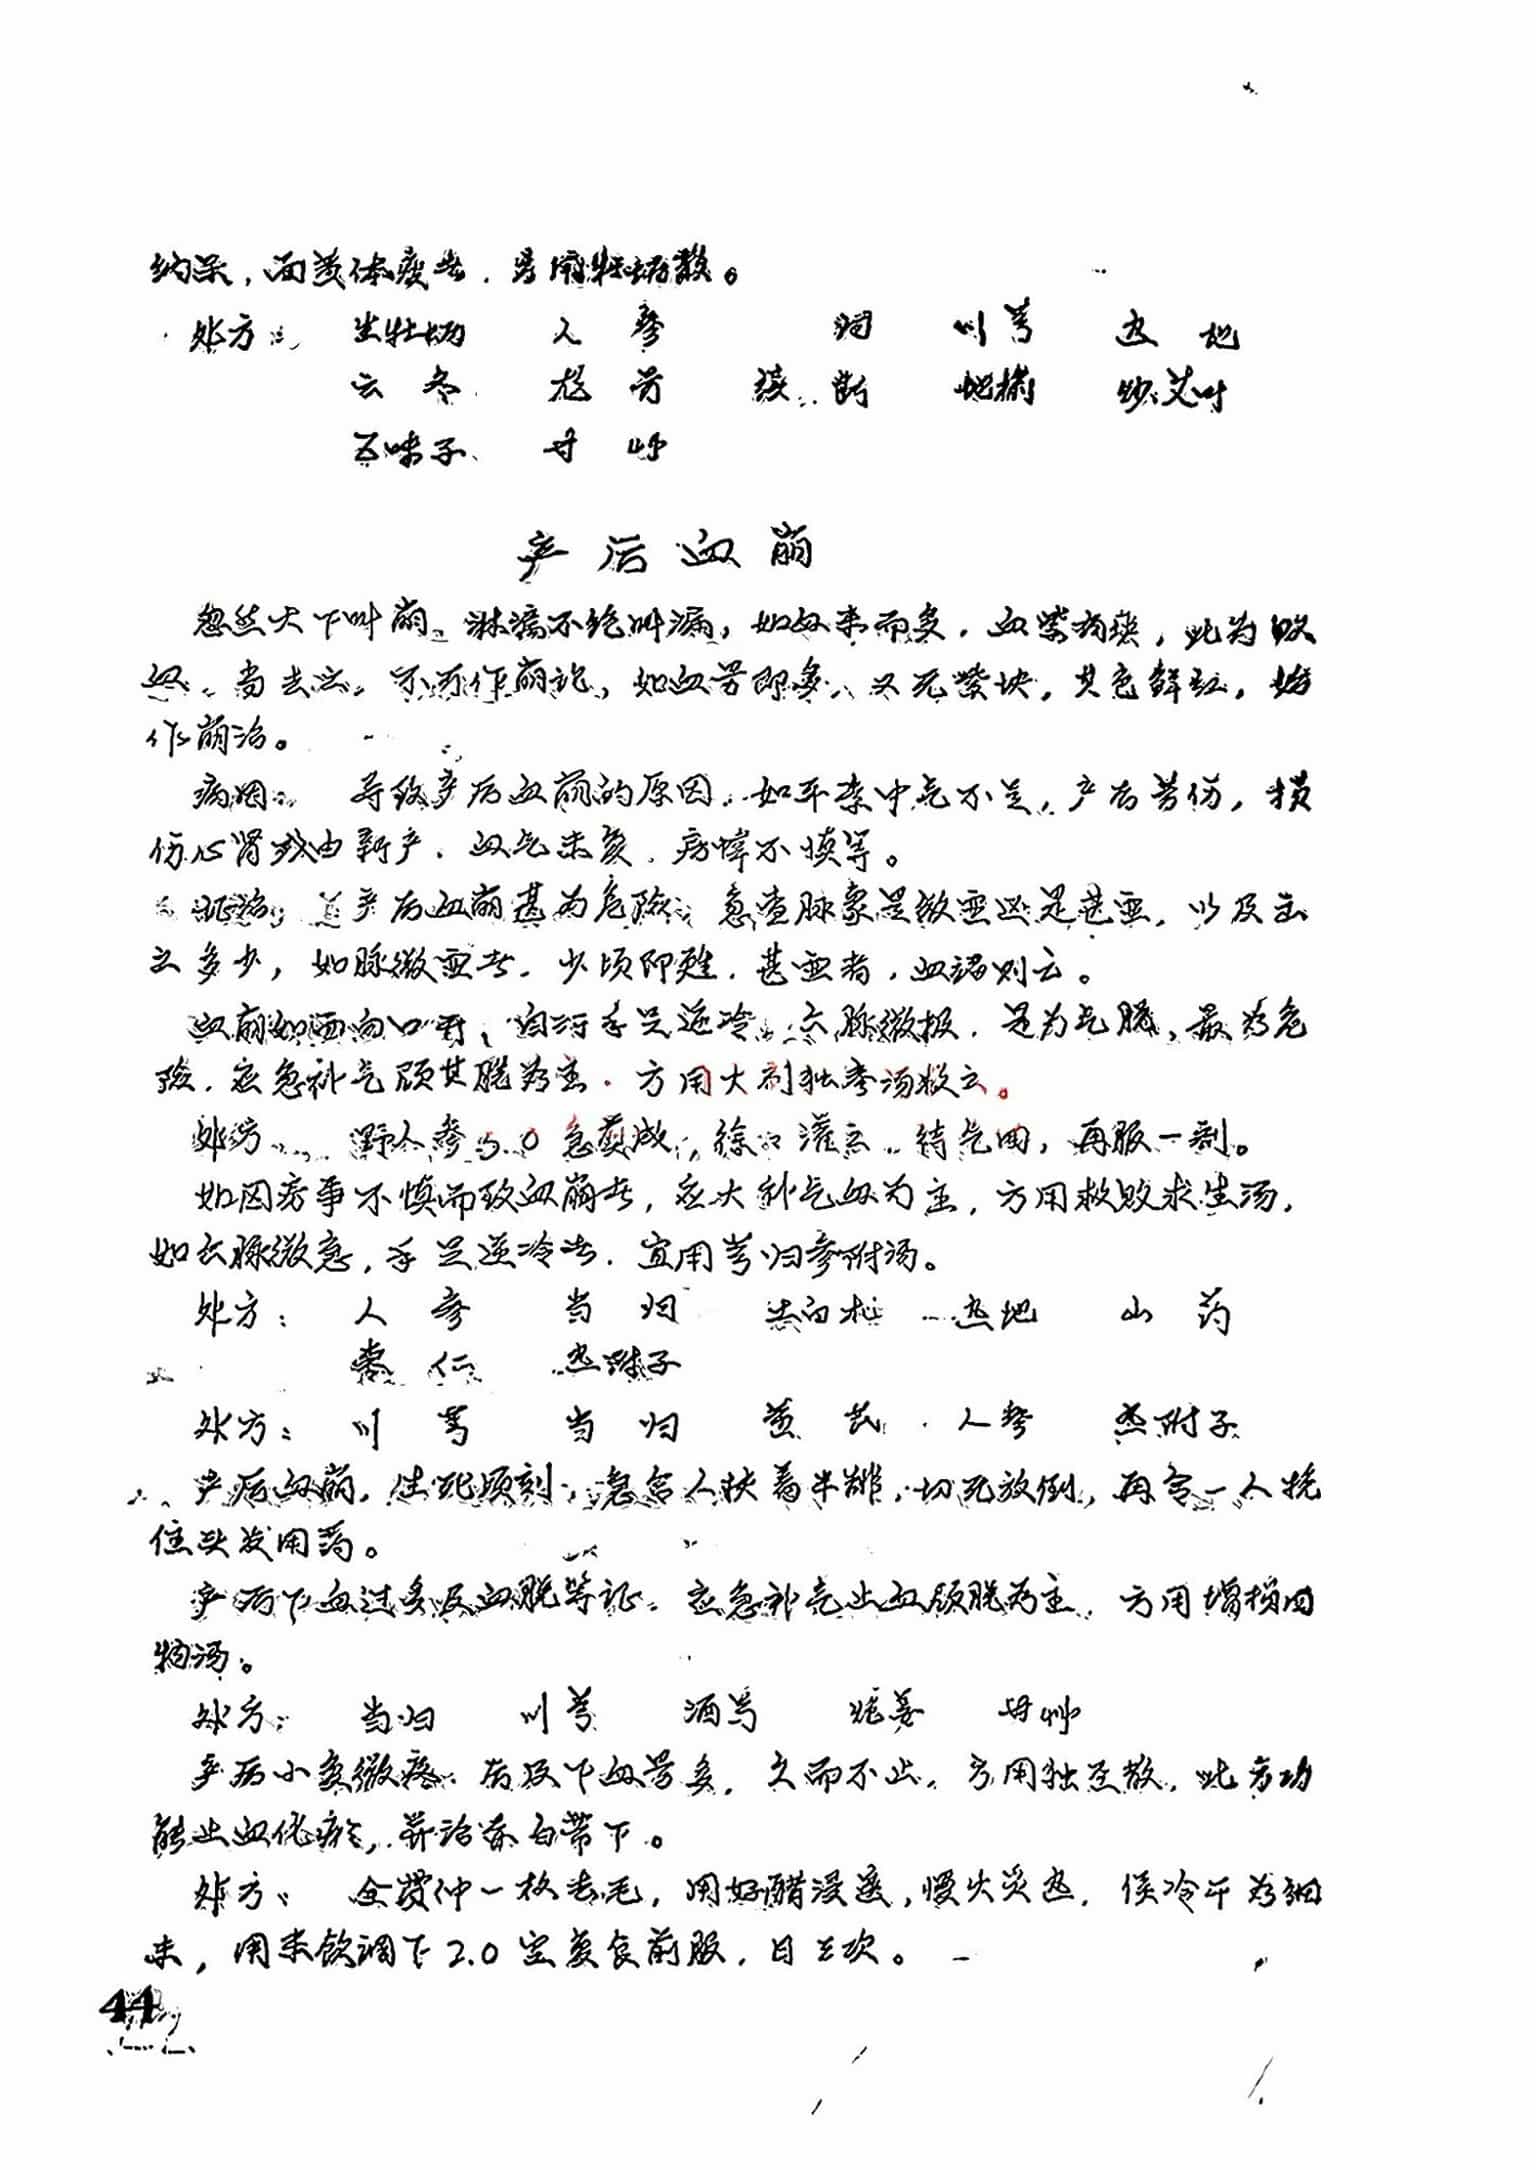 纳呆，面黄体瘦者，另用牡蛎散。
处方：　生牡蛎　人参　归　川芎　熟地
云冬　炮姜　续断　地榆　炒艾叶
五味子　甘草
产后血崩
忽然大下叫崩，淋漓不绝叫漏，如血来而多，血紫有块，此为败
血，当去之，不可作崩论，如血劳即多，又无紫块，其色鲜红，始
作崩治。
病因：　导致产后血崩的原因，如平素中气不足，产后劳伤，损
伤心肾或由新产，血气未复，房帏不慎等。
证治：　产后血崩甚为危险，急查脉象是微亟还是甚亟，以及出
之多少，如脉微亟者，少顷即难，甚亟者，血竭则亡。
血崩如面向口开，自汗手足逆冷，六脉微极，是为气脱，最为危
险，应急补气顾其脱为主，方用大剂独参汤救之。
处方：　野人参5.0急煎成，徐口灌之，待气回，再服一剂。
如因房事不慎而致血崩者，应大补气血为主，方用救败求生汤，
如六脉微急，手足逆冷者，宜用芎归参附汤。
处方：　人参　当归　白术　熟地　山药
枣仁　熟附子
处方：　川芎　当归　黄芪　人参　熟附子
产后血崩，生死顷刻，急令人扶着半卧，切死放倒，再令一人挽
住头发用药。
产后下血过多及血脱等证，应急补气止血顾脱为主，方用增损四
物汤。
处方：　当归　川芎　酒芍　炮姜　甘草
产后小腹微疼，后及下血劳多，久而不止，方用独圣散，此方功
能止血化瘀，并治赤白带下。
处方：　全贯仲一枚去毛，用好醋浸透，慢火炙熟，候冷干为细
末，用米饮调下2.0空腹食前服，日三次。
44